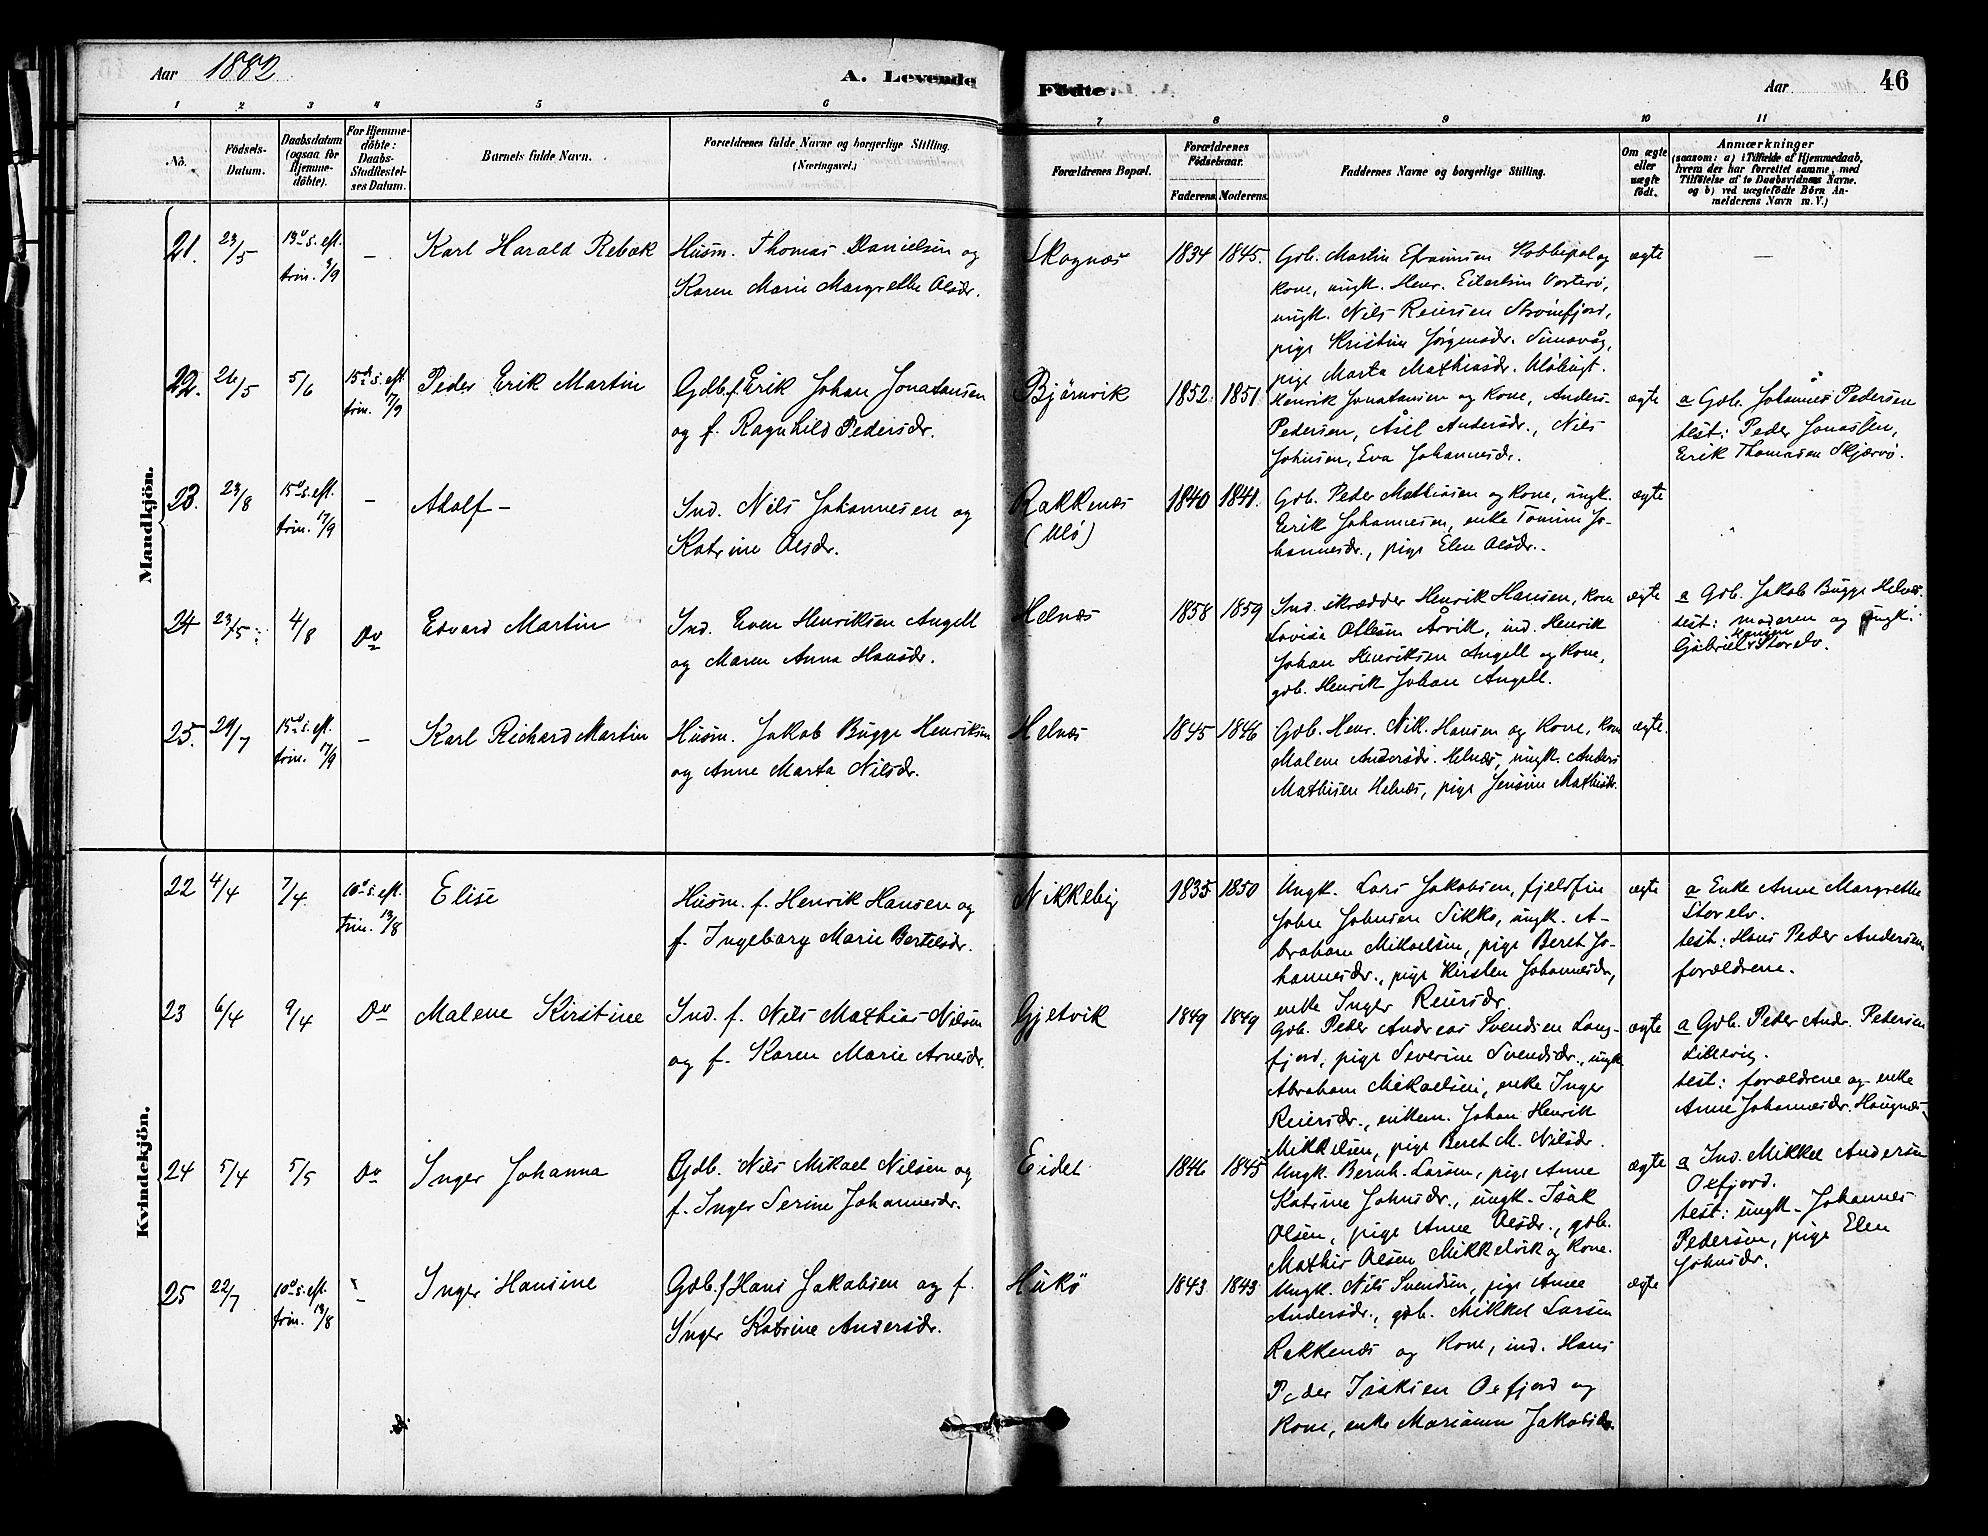 Aar 1882 A. Levende Födte. Aar 46
1 2 3 4 5 6 7 8 9 10 11
No. Födsels-Datum. Daabsdatum (ogsaa for Hjemme-döbte). For Hjemme-döbte: Daabs-Stadfæstel-ses Datum. Barnets fulde Navn. Forældrenes fulde Navne og borgerlige Stilling. (Næringsvei.) Forældrenes Bopæl. Forældrenes Födselsaar. Faderens Moderens. Faddernes Navne og borgerlige Stilling. Om ægte eller uægte födt. Anmærkninger (saasom: a) i Tilfælde af Hjemmedaab, hvem der har forrettet samme, med Tilföielse af to Daabsvidners Navne. og b) ved uægtefödte Börn An-melderens Navn m. V.)
Mandkjön.
21. 23/5 13de s. eft. trin. 3/9 – Karl Harald Rebæk
Husm. Thomas Danielsen og
Karen Marie Margrethe Olsdr.
Skognæs 1834 1845.
Gdb. Martin Efraimsen Kobbepol og
kone, ungk. Henr. Eilertsen Vorterø,
ungk. Nils Reiersen Strømfjord,
pige Kristine Jørgensdr. Simavåg,
pige Marta Mathiasdr. Uløbugt.
ægte –
22. 26/5 5/6 15de s. eft. trin. 17/9 Peder Erik Martin
Gdb. f. Erik Johan Jonatansen
og f. Ragnhild Pedersdr.
Bjørnvik 1852 1851
Henrik Jonatansen og kone, Anders
Pedersen, Åsel Andersdr., Nils
Johnsen, Eva Johannesdr.
ægte
a Gdb. Johannes Pedersen
test: Peder Jonassen,
Erik Thomasen Skjærvø.
23. 23/8 15de s. eft. trin. 17/9 – Adolf –
Ind. Nils Johannesen og
Katrine Olsdr.
Rakkenæs
(Ulø)
1840 1841.
Gdb. Peder Mathiasen og kone, ungk.
Erik Johannesen, enke Tomine Jo-
hannesdr., pige Elen Olsdr.
ægte
24 23/5 4/8 Do Edvard Martin
Ind. Even Henriksen Angell
og Maren Anna Hansdr.
Helnæs 1858 1859
Ind. skrædder Henrik Hansen, kone
Lovisa Ottesen Arvik, ind. Henrik
Johan Henriksen Angell og kone,
gdb. Henrik Johan Angell.
ægte
a Gdb. Jakob Bugge Helnæs.
test: moderen og ungk.
Gabriel Hansen Storelv.
25. 29/7 15de s. eft. trin. 17/9 – Karl Richard Martin
Husm. Jakob Bugge Henriksen
og Anne Marta Nilsdr.
Helnæs 1845 1846
Gdb. Henr. Nik. Hansen og kone, kone
Malene Andersdr. Helnæs, ungk. Anders
Mathisen Helnæs, pige Jensine Mathisdr.
ægte.
Kvindekjön.
22 4/4 7/4 10de s. eft. trin. 13/8 Elise
Husm. f. Henrik Hansen og
f. Ingeborg Marie Bertelsdr.
Nikkeby 1835 1850
Ungk. Lars Jakobsen, fjeldfin
John Johnsen Sikko, ungk. A-
braham Mikaelsen, pige Beret Jo-
hannesdr., pige Kirsten Johannesdr,
enke Inger Reiersdr.
ægte
a Enke Anne Margrethe
Storelv.
test: Hans Peder Andersen,
forældrene.
23 6/4 9/4 Do Malene Kirstine
Ind. f. Nils Mathias Nilsen
og f. Karen Marie Arnesdr.
Gjetvik 1849 1849
Gdb. Peder Andreas Svendsen Lang-
fjord, pige Severine Svendsdr., ungk
Abraham Mikaelsen, enke Inger
Reiersdr., enkem. Johan Henrik
Mikkelsen, pige Beret M. Nilsdr.
ægte
a Gdb. Peder Andr. Pedersen
Lillevig.
test: forældrene og enke
Anne Johannesdr. Haugnæs
24 5/4 5/5 Do Inger Johanna
Gdb. Nils Mikael Nilsen og
f. Inger Serine Johannesdr.
Eidet 1846 1845
Ungk. Bernh. Larsen, pige Anne
Katrine Johnsdr., ungk. Isak
Olsen, pige Anne Olsdr., gdb.
Mathis Olsen Mikkelvik og kone.
ægte
a Ind. Mikkel Andersen
Oxfjord.
test: ungk. Johannes
Pedersen, pige Elen
Johnsdr.
25 22/7 10de s. eft. trin. 13/8 – Inger Hansine
Gdb. f. Hans Jakobsen og f.
Inger Katrine Andersdr.
Hukø 1843 1843
Ungk. Nils Svendsen, pige Anne
Andersdr., gdb. Mikkel Larsen
Rakkenæs og kone, ind. Hans
Peder Isaksen Oxfjord og
kone, enke Marianne Jakobsdr.
ægte